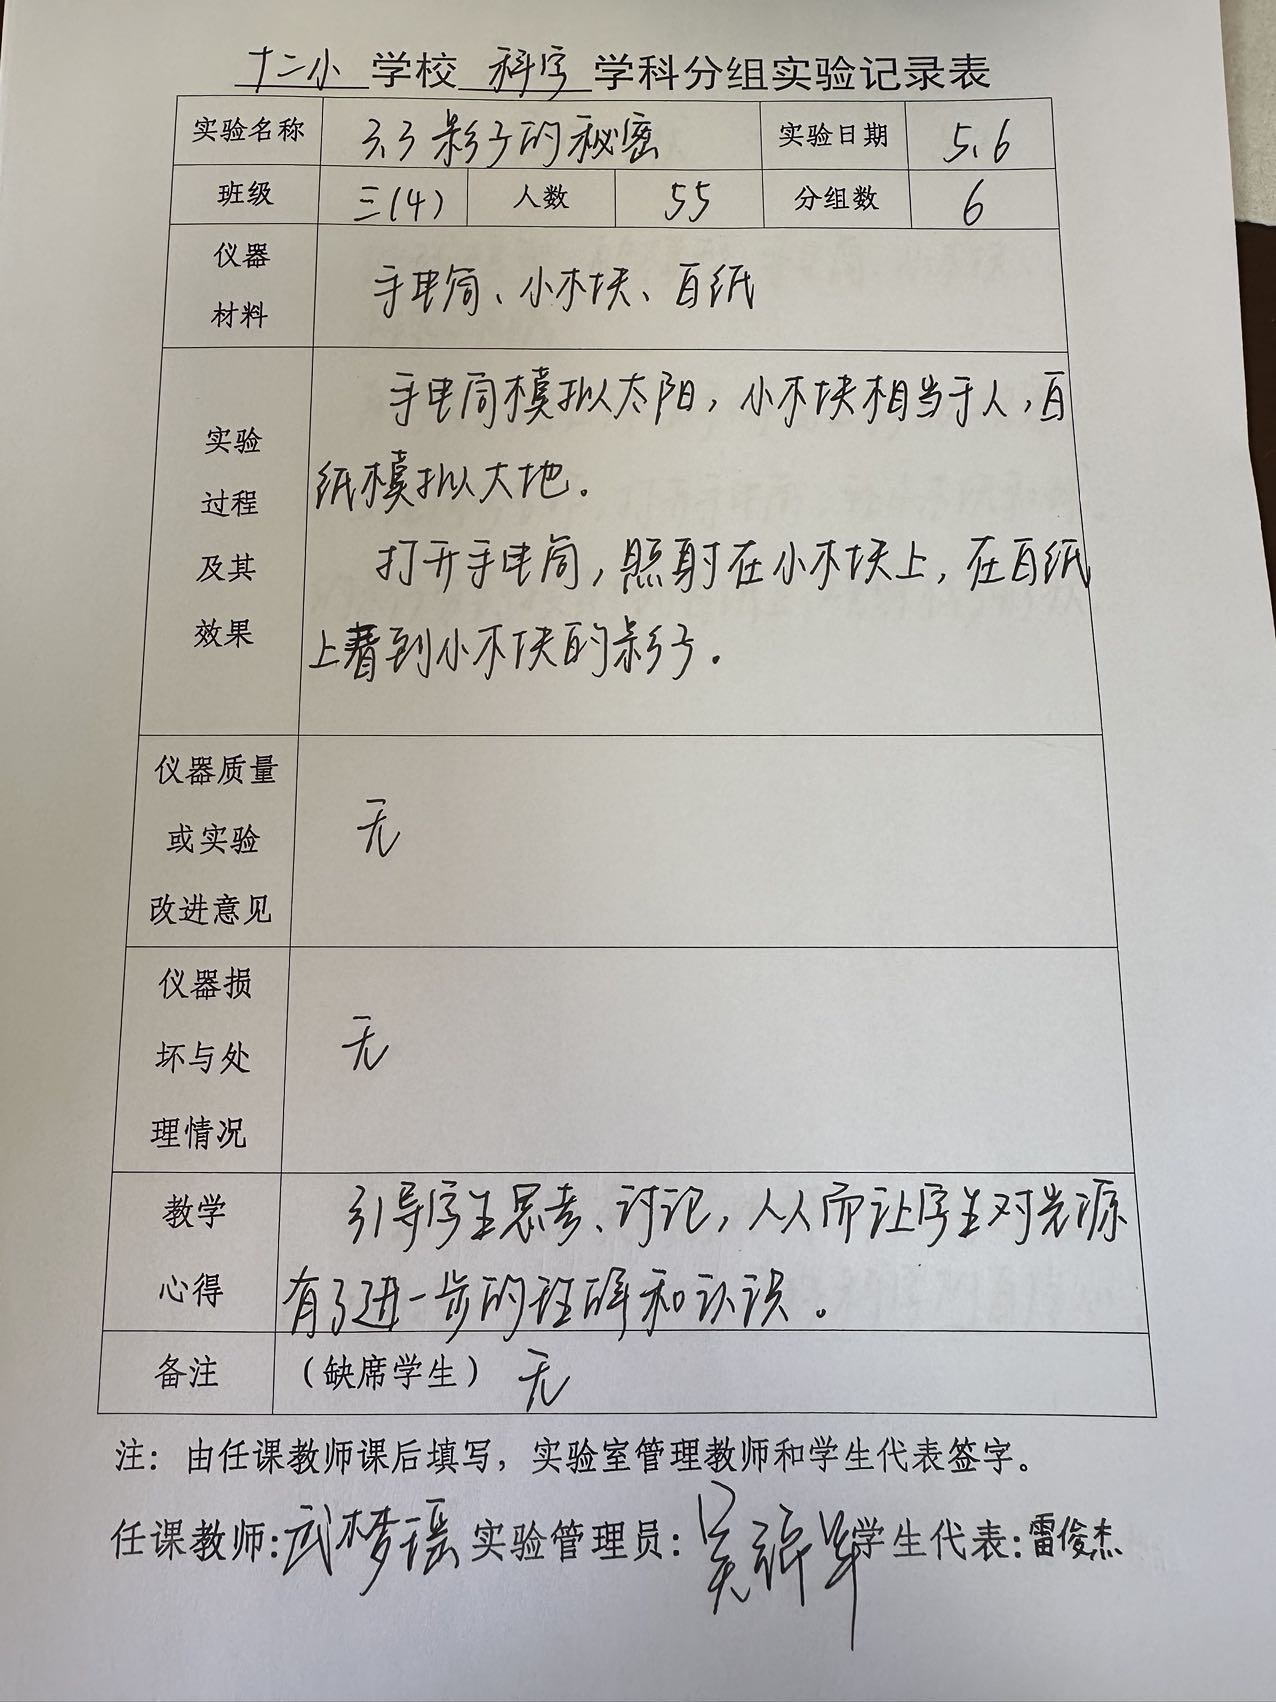 十二小 学校 科学 学科分组实验记录表
实验名称 3.3 影子的秘密 实验日期 5.6
班级 三(4) 人数 55 分组数 6
仪器
材料
手电筒、小木块、白纸
实验
过程
及其
效果
手电筒模拟太阳，小木块相当于人，白
纸模拟大地。
打开手电筒，照射在小木块上，在白纸
上看到小木块的影子。
仪器质量
或实验
改进意见
无
仪器损
坏与处
理情况
无
教学
心得
引导学生思考、讨论，从而让学生对光源
有了进一步的理解和认识。
备注 （缺席学生） 无
注：由任课教师课后填写，实验室管理教师和学生代表签字。
任课教师:武梦瑶 实验管理员: 学生代表:雷俊杰